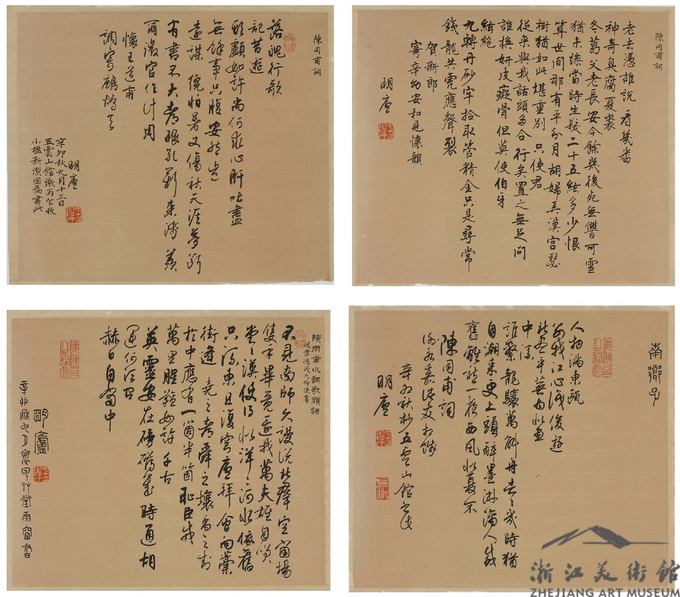 陳同甫詞
落魄行歌
記昔遊
頭顱如許尚何求心肝吐盡
無餘事口腹安然豈
遠謀 纔怕暑又傷秋天涯夢斷
有書不大都眼孔新來淺羨
爾微官作計周
懷王道甫
調寄鷓鴣天
辛卯秋九月十三日
五雲山館
明廬
陳同甫詞
老去憑誰說看幾番
神奇臭腐夏裘
冬葛父老長安今餘幾後死無讐可雪
猶未燥當時生髮二十五絃多少恨
算世間那有平分月胡婦弄漢宮瑟
樹猶如此堪重別只使君
從來與我話頭多合行矣置之無足問
誰換妍皮癡骨但莫使伯牙
絃絕
九轉丹砂牢拾取管精金只是尋常
鐵龍共虎應聲裂
賀新郎
寄辛幼安和見懷韻
明廬
陳同甫水調歌頭詞
送章德茂大卿使虜
不見南師久漫說北群空當場
隻手畢竟還我萬夫雄自笑
堂堂漢使得似洋洋河水依舊
只流東且復穹廬拜會向藁
街逢 堯之都舜之壤禹之封
於中應有一箇半箇恥臣戎
萬里腥羶如許千古
英靈安在磅礴幾時通胡
運何須問
赫日自當中
明廬
南鄉子
人物滿東甌
別我江心識俊遊
北盡平蕪南似畫
中流
誰繫龍驤萬斛舟去去幾時猶
自潮來更上頭醉墨淋漓人感
舊離愁一夜西風似夏不
陳同甫詞
謝永嘉諸友相餞
辛卯秋於五雲山館
明廬
浙江美術館
ZHEJIANG ART MUSEUM